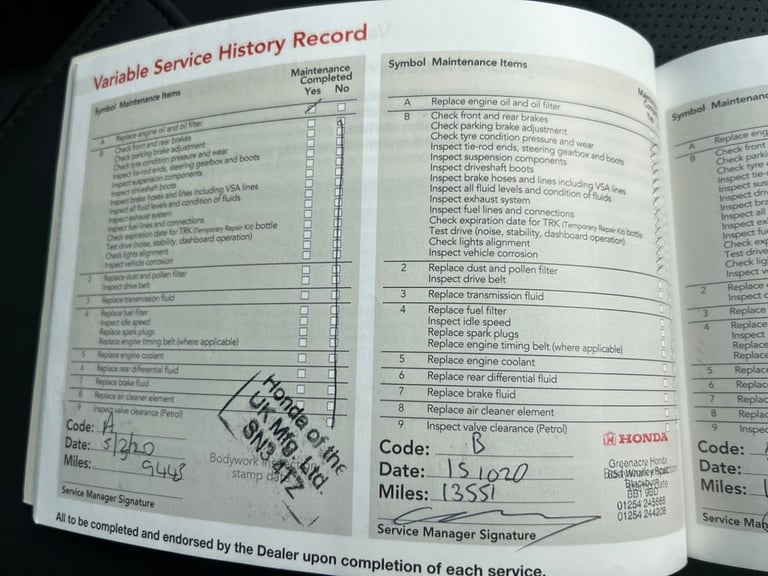 Variable Service History Record
Symbol Maintenance Items
Maintenance
Completed
Yes No
A Replace engine oil and oil filter
B Check front and rear brakes
Check parking brake adjustment
Check tyre condition pressure and wear
Inspect tie-rod ends, steering gearbox and boots
Inspect suspension components
Inspect driveshaft boots
Inspect brake hoses and lines including VSA lines
Inspect all fluid levels and condition of fluids
Inspect exhaust system
Inspect fuel lines and connections
Check expiration date for TRK (Temporary Repair Kit) bottle
Test drive (noise, stability, dashboard operation)
Check lights alignment
Inspect vehicle corrosion
2 Replace dust and pollen filter
Inspect drive belt
3 Replace transmission fluid
4 Replace fuel filter
Inspect idle speed
Replace spark plugs
Replace engine timing belt (where applicable)
5 Replace engine coolant
6 Replace rear differential fluid
7 Replace brake fluid
8 Replace air cleaner element
9 Inspect valve clearance (Petrol)
Code: A
Date: 5/2/20
Miles: 9443
Bodywork
stamp
Honda of the
UK Mfg. Ltd.
SN3 4TZ
Service Manager Signature
Symbol Maintenance Items
A Replace engine oil and oil filter
B Check front and rear brakes
Check parking brake adjustment
Check tyre condition pressure and wear
Inspect tie-rod ends, steering gearbox and boots
Inspect suspension components
Inspect driveshaft boots
Inspect brake hoses and lines including VSA lines
Inspect all fluid levels and condition of fluids
Inspect exhaust system
Inspect fuel lines and connections
Check expiration date for TRK (Temporary Repair Kit) bottle
Test drive (noise, stability, dashboard operation)
Check lights alignment
Inspect vehicle corrosion
2 Replace dust and pollen filter
Inspect drive belt
3 Replace transmission fluid
4 Replace fuel filter
Inspect idle speed
Replace spark plugs
Replace engine timing belt (where applicable)
5 Replace engine coolant
6 Replace rear differential fluid
7 Replace brake fluid
8 Replace air cleaner element
9 Inspect valve clearance (Petrol)
Code: B
Date: 151020
Miles: 13551
HONDA
Greenacre Honda
Blackburn
BB1 9BD
01254 244208
Service Manager Signature
All to be completed and endorsed by the Dealer upon completion of each service.
Symbol Maintenance
A Replace eng
B Check front
Check parki
Check tyre
Inspect tie-
Inspect sus
Inspect driv
Inspect bra
Inspect all
Inspect ex
Inspect fu
Check exp
Test drive
Check lig
Inspect v
2 Replace
Inspect
3 Replace
4 Replace
Inspect
Replace
Replace
5 Replac
6 Replac
7 Replac
8 Replac
9 Inspec
Code:
Date:
Miles:
Service Man